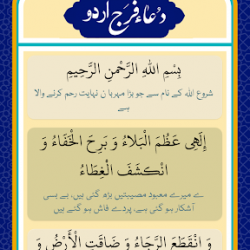 دُعاءِ فَرَج اردو
بِسْمِ اللهِ الرَّحْمنِ الرَّحِيمِ
شروع اللہ کے نام سے جو بڑا مہربا ن نہایت رحم کرنے والا
ہے
إِلَهِي عَظُمَ الْبَلاَءُ وَ بَرِحَ الْخَفَاءُ وَ
انْكَشَفَ الْغِطَاءُ
ے میرے معبود مصیبتیں بڑھ گئی ہیں، بے بسی
آشکار ہو گئی ہے، پردے فاش ہو گئے ہیں
وَ انْقَطَعَ الرَّجَاءُ وَ ضَاقَتِ الْأَرْضُ وَ